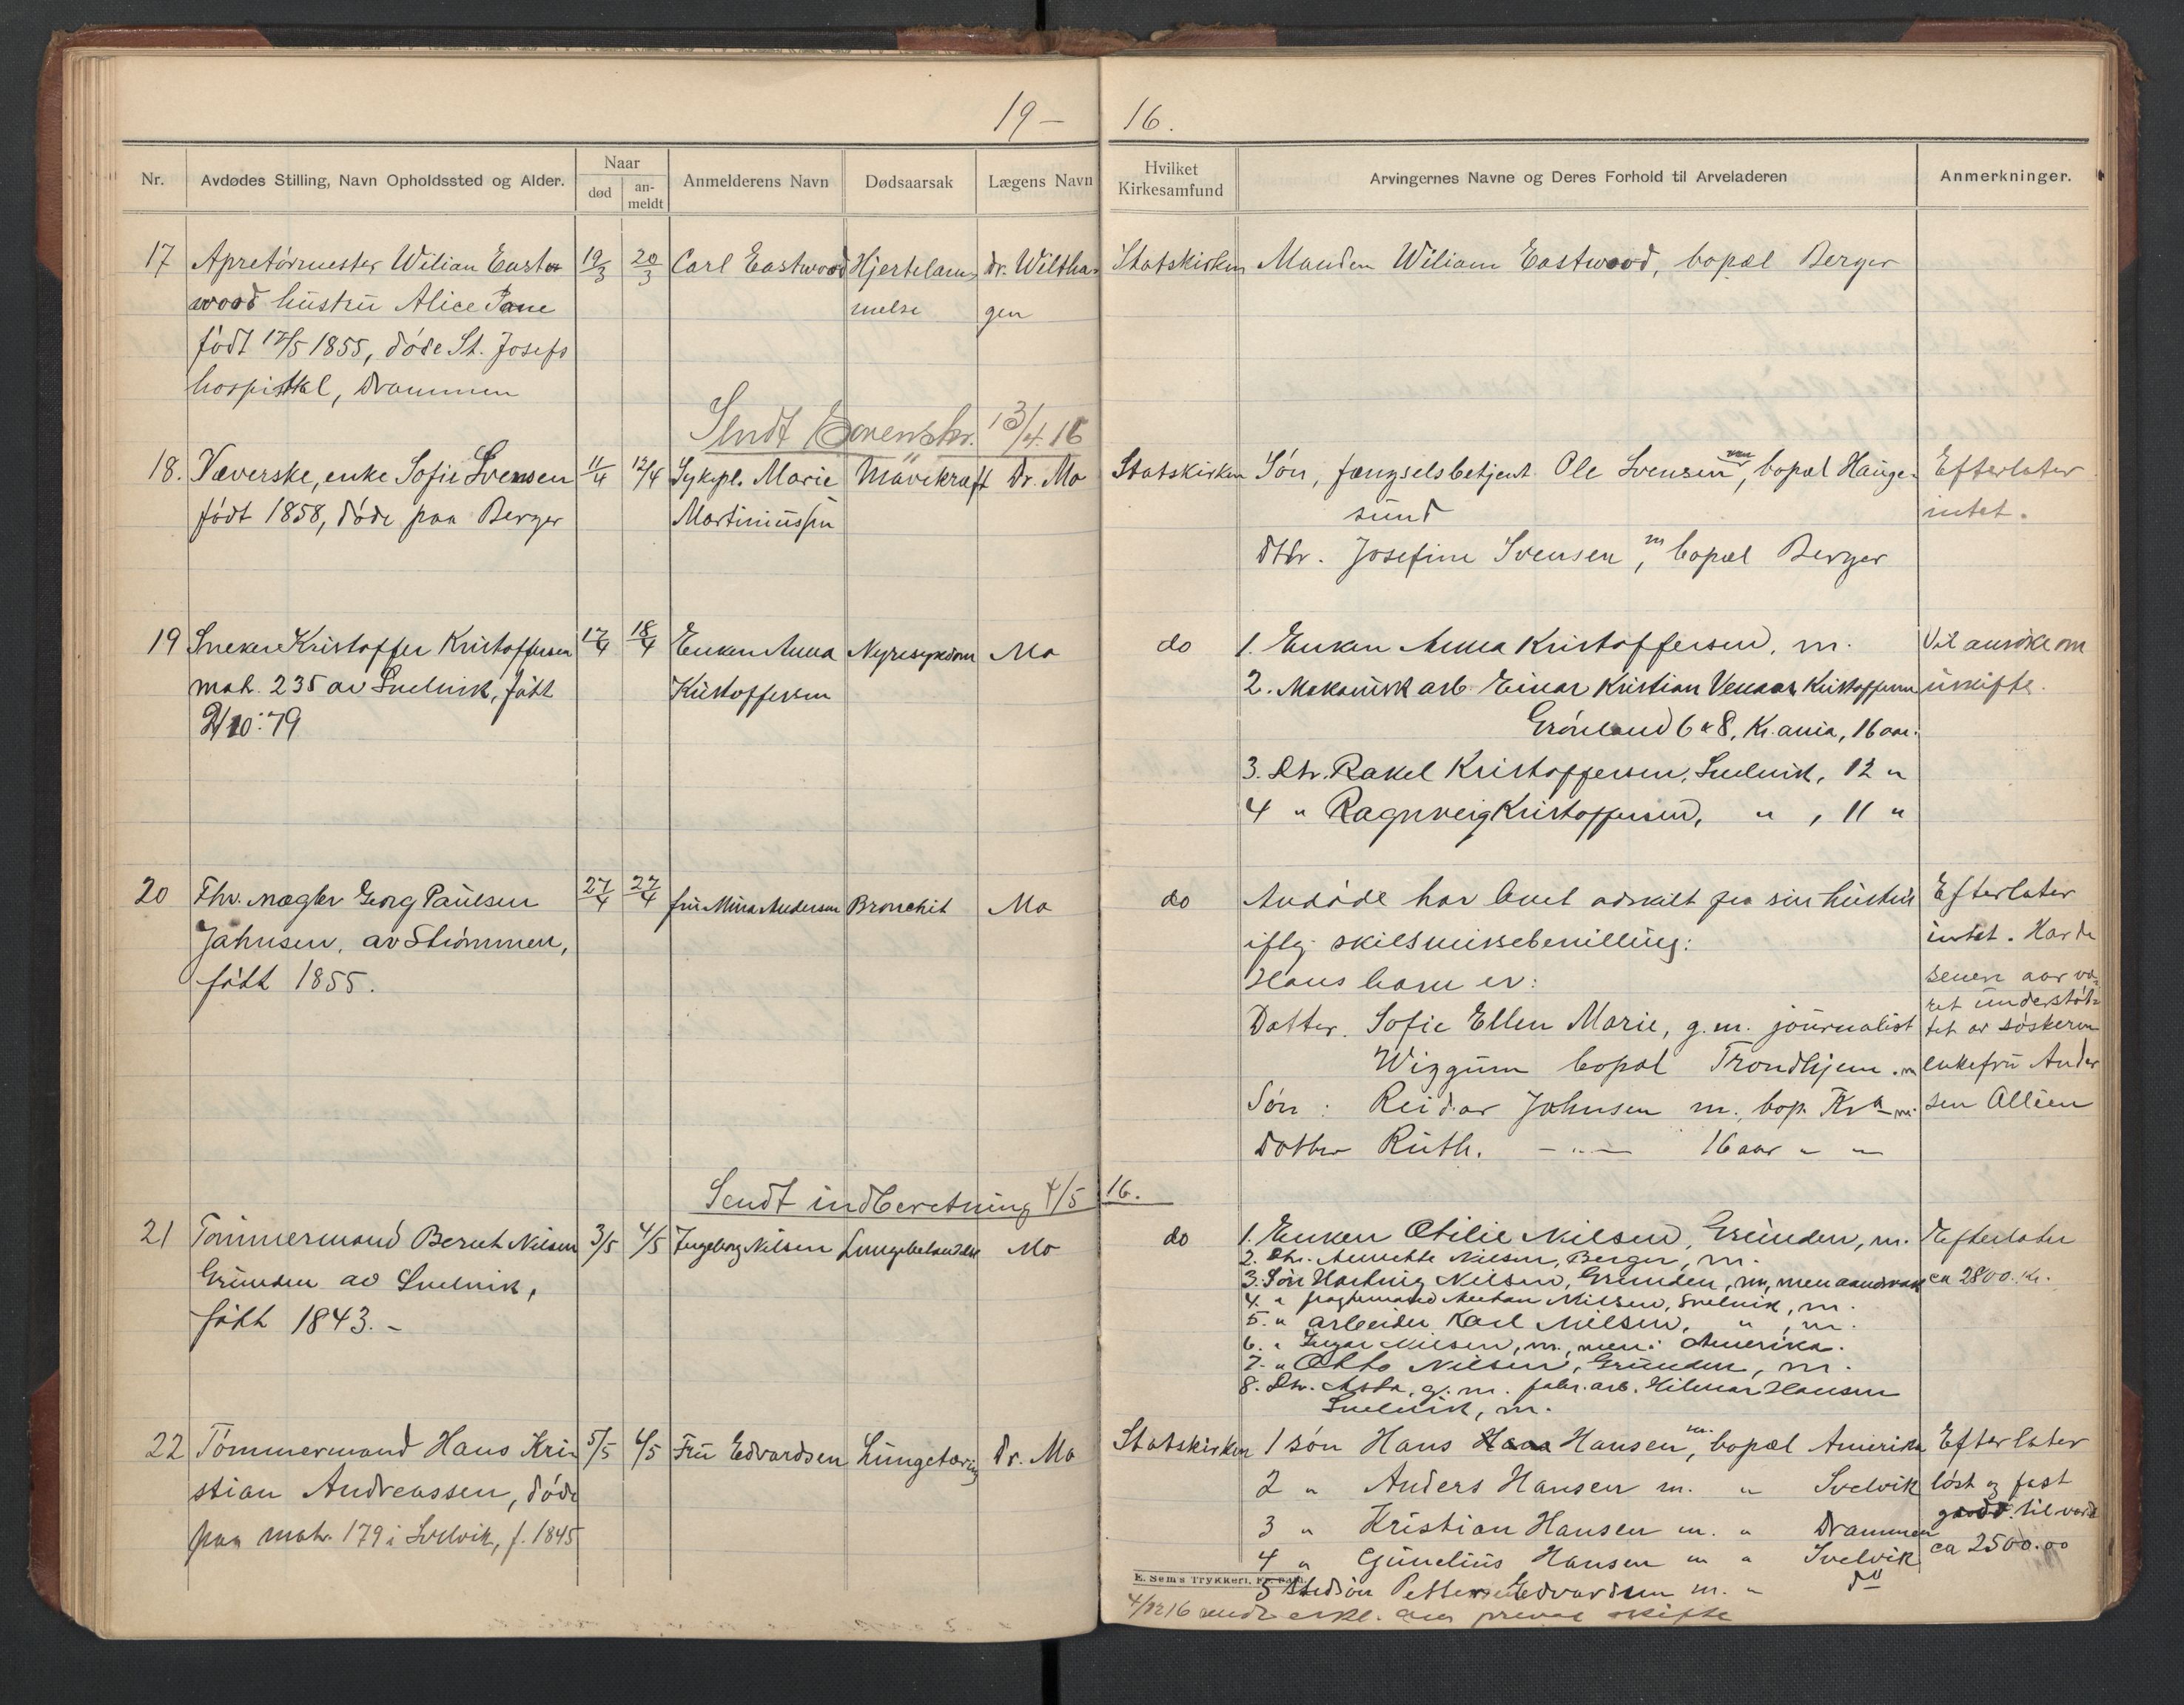 19 — 16.
Nr.
Avdødes Stilling, Navn Opholdssted og Alder.
Naar
død
an-
meldt
Anmelderens Navn
Dødsaarsak
Lægens Navn
Hvilket
Kirkesamfund
Arvingernes Navne og Deres Forhold til Arveladeren
Anmerkninger.
17 Apretørmester Wilian East
wood hustru Alice Jane
født 12/5 1855, døde St. Josefs
hospital, Drammen
19/3 20/3 Carl Eastwood Hjertelam-
melse
dr. Wiltha-
gen
Statskirken Manden Wiliam Eastwood, bopæl Berger
Sendt Sorenskr. 13/4. 16
18. Væverske, enke Sofie Svensen
født 1858, døde paa Berger
11/4 12/4 Sykepl. Marie
Martiniussen
Mavekræft Dr. Mo
Statskirken Søn, fængselsbetjent Ole Svensen, bopæl Hauge-
sund
dtr. Josefine Svensen, m bopæl Berger
Efterlater
intet.
19 Sneker Kristoffer Kristoffersen
mat. 235 av Svelvik, født
2/10. 79
17/4 18/4 Enken Anna
Kristoffersen
Nyresygdom Mo
do 1. Enken Anna Kristoffersen, m.
2. Mekanisk arb. Einar Kristian Kristoffersen
Grønland 6 & 8, Kr.ania, 16 aar.
3. Dtr. Rakel Kristoffersen, Svelvik, 12 "
4 " Ragnveig Kristoffersen, " , 11 "
Vil ansøke om
uskifte.
20 Fhv. mægler Georg Paulsen
Jahnsen, av Strømmen,
født 1855.
27/4 27/4 fru Mina Andersen Bronchit Mo
do Avdøde har levet adskilt fra sin hustru
iflg. skilsmissebevilling:
Hans barn er:
Datter. Sofie Ellen Marie, g.m. journalist
Wiggum bopæl Trondhjem. m
Søn: Reidar Johnsen m. bop. Kr.a m.
Datter Ruth. — " — 16 aar " "
Efterlater
intet. Har de
senere aar væ-
ret understøt-
tet av søsteren
enkefru Ander
sen Alléen
Sendt indberetning 4/5 16.
21 Tømmermand Bernt Nilsen
Grunden av Svelvik,
født 1843. -
3/5 4/5 Ingeborg Nilsen Lungebetændelse Mo
do 1. Enken Otilie Nilsen, Grunden, m.
2. Dtr. Annette Nilsen, Berger, m.
3. Søn Hartvig Nilsen, Grunden, m, men aandssvak
4. " Nilsen, Svelvik, m.
5. " arbeider Karl Nilsen, " , m.
6. " Nilsen, m., Amerika.
7. " Otto Nilsen, Grunden, m.
8. Dtr. Asta, g.m. fabr.arb. Hilmar Hansen
Svelvik, m.
Efterlater
ca 2800. Kr.
22 Tømmermand Hans Kri-
stian Andreassen, døde
paa matr. 179 i Svelvik, f. 1845
5/5 6/5 Fru Edvardsen Lungetæring Dr. Mo
Statskirken 1 søn Hans Hansen, m. bopæl Amerika
2 " Anders Hansen m. " Svelvik
3 " Kristian Hansen m. " Drammen
4 " Gunelius Hansen m " Svelvik
5 Stedsøn Petter Edvardsen m. " do
Efterlater
løst og fast
gods til værdi
ca 2500.00
E. Sem's Trykkeri, Fr.hald.
4/12 16 sendt erkl. om privat skifte